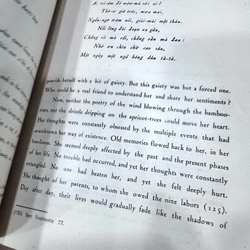 Thờ-ơ gió trúc, mưa mai,
Ngẩn-ngơ trăm nỗi, giùi-mài một thân.
Nỗi lòng đòi đoạn xa gần,
Chẳng vò mà rối, chẳng dần mà đau:
Nhớ ơn chín chữ cao sâu,
Một ngày một ngả bóng dâu tà-tà.
herself with a bit of gaiety. But this gaiety was but a forced one.
Who could be a real friend to understand her and share her sentiments?
Now, neither the poetry of the wind blowing through the bamboo-
trees, nor the drizzle dripping on the apricot-trees could move her heart.
Her thoughts were constantly obsessed by the multiple events that had
overthrown her way of existence. Old memories flowed back to her, in her
loneliness. She seemed deeply affected by the past and the present phases
of her life. No trouble had occurred, and yet her thoughts were constantly
entangled. No one had beaten her, and yet she felt deeply hurt.
She thought of her parents, to whom she owed the nine labors (125).
Day after day, their lives would gradually fade like the shadows of
(125) See footnote 77.